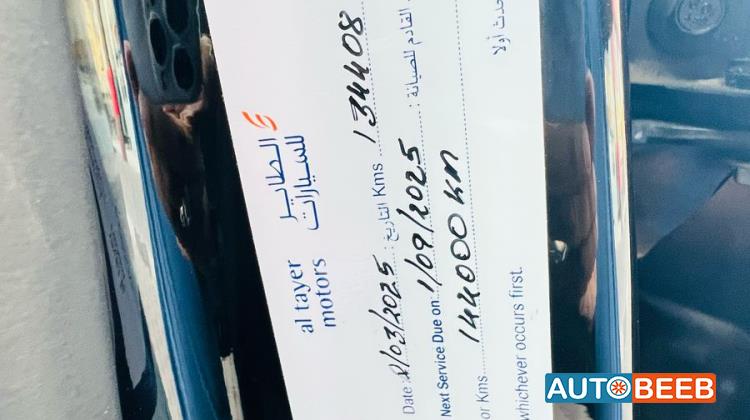 الطاير
للسيارات
al tayer
motors
Date: /03/2025 التاريخ: Kms 134408
Next Service Due on: 1/09/2025 القادم للصيانة:
or Kms 144000 KM
whichever occurs first.
حدث أولا
AUTOBEEB